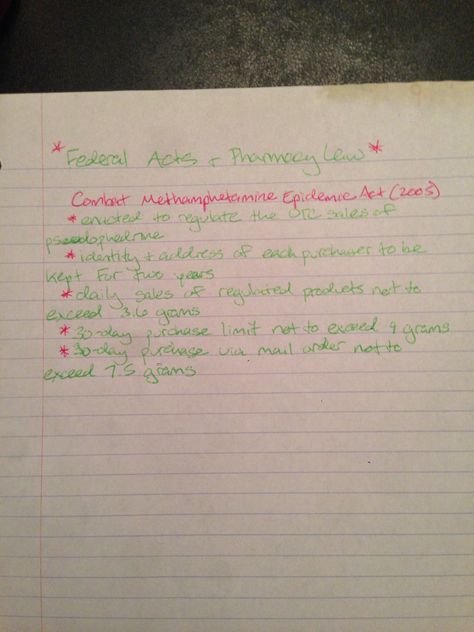 *Federal Acts + Pharmacy Law*
Combat Methamphetamine Epidemic Act (2005)
*enacted to regulate the OTC sales of
pseudophedrine
*identity + address of each purchaser to be
kept for two years
*daily sales of regulated products not to
exceed 3.6 grams
*30-day purchase limit not to exceed 9 grams
*30-day purchase via mail order not to
exceed 7.5 grams